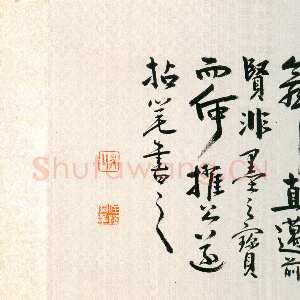 直邁前
賢非墨之寶
而何攤公道
拈筆書之
Shufawang.CN